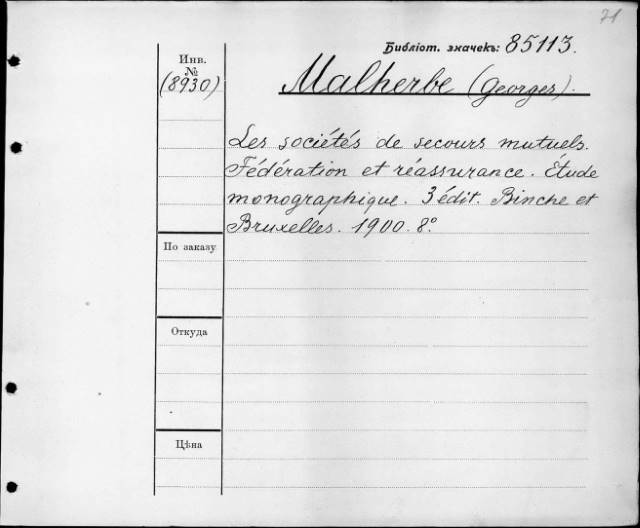 71
Библіот. значекъ: 85113.
Инв.
№
(8930)
Malherbe (Georges).
Les sociétés de secours mutuels.
Fédération et réassurance. Étude
monographique. 3 édit. Binche et
Bruxelles. 1900. 8°.
По заказу
Откуда
Цѣна